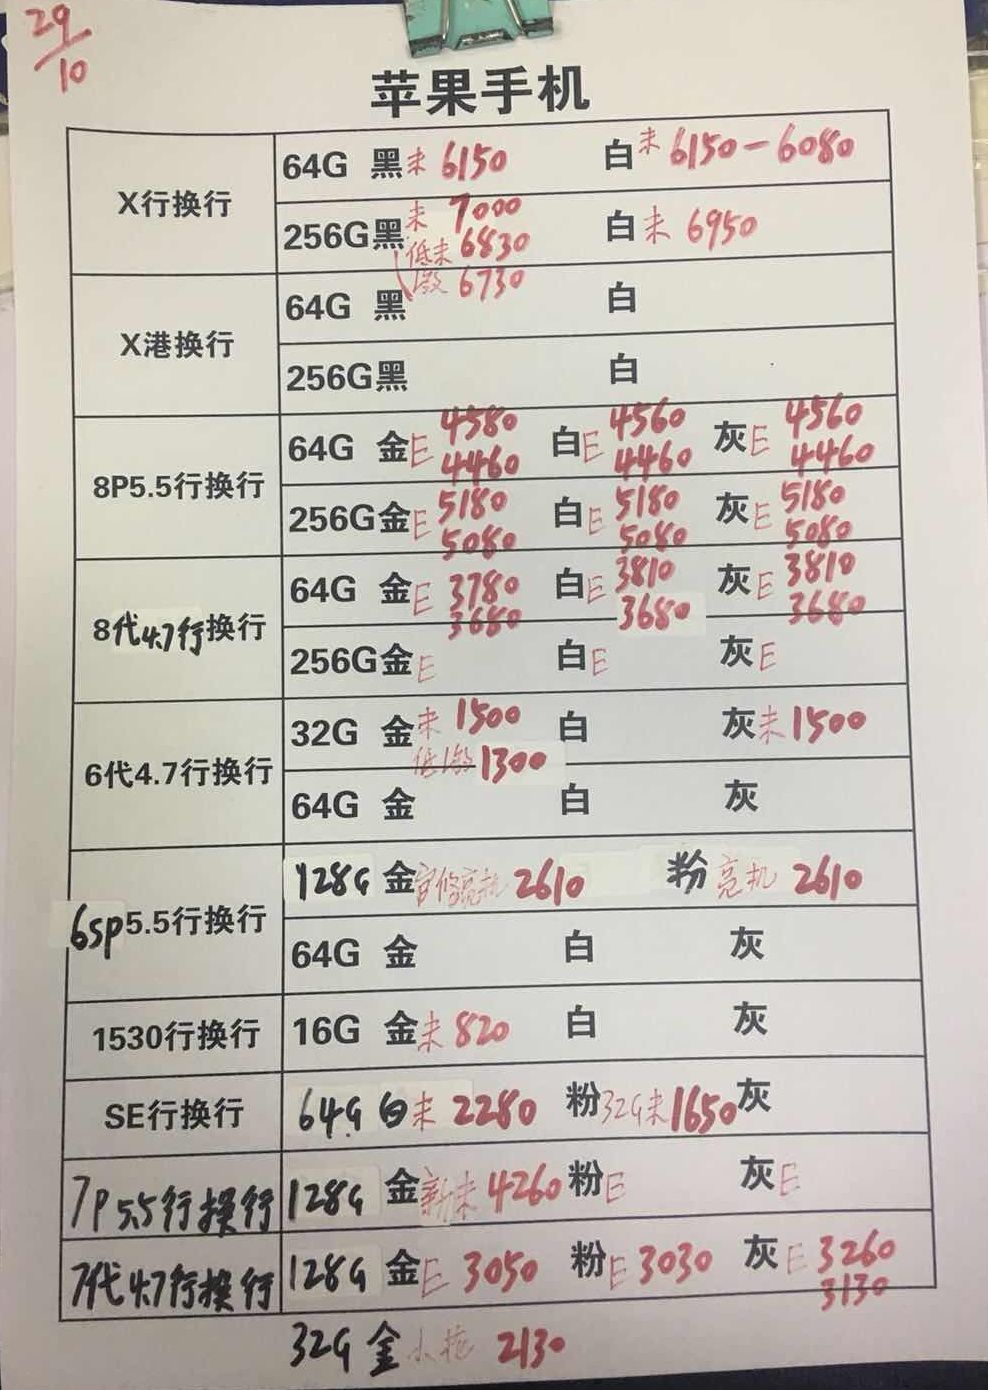 29/10
苹果手机
X行换行
64G 黑未 6150 白未 6150-6080
256G黑未 7000 白未 6950
低未 6830
激 6730
X港换行
64G 黑 白
256G黑 白
8P5.5行换行
64G 金E 4580 白E 4560 灰E 4560
4460 4460 4460
256G金E 5180 白E 5180 灰E 5180
5080 5080 5080
8代4.7行换行
64G 金E 3780 白E 3810 灰E 3810
3680 3680 3680
256G金E 白E 灰E
6代4.7行换行
32G 金未 1500 白 灰未1500
低激1300
64G 金 白 灰
6sp5.5行换行
128G 金官修亮机 2610 粉亮机 2610
64G 金 白 灰
1530行换行
16G 金未 820 白 灰
SE行换行
64G 白未 2280 粉32G未1650灰
7P5.5行换行
128G 金新未 4260 粉E 灰E
7代4.7行换行
128G 金E 3050 粉E 3030 灰E 3260
3130
32G 金小花 2130